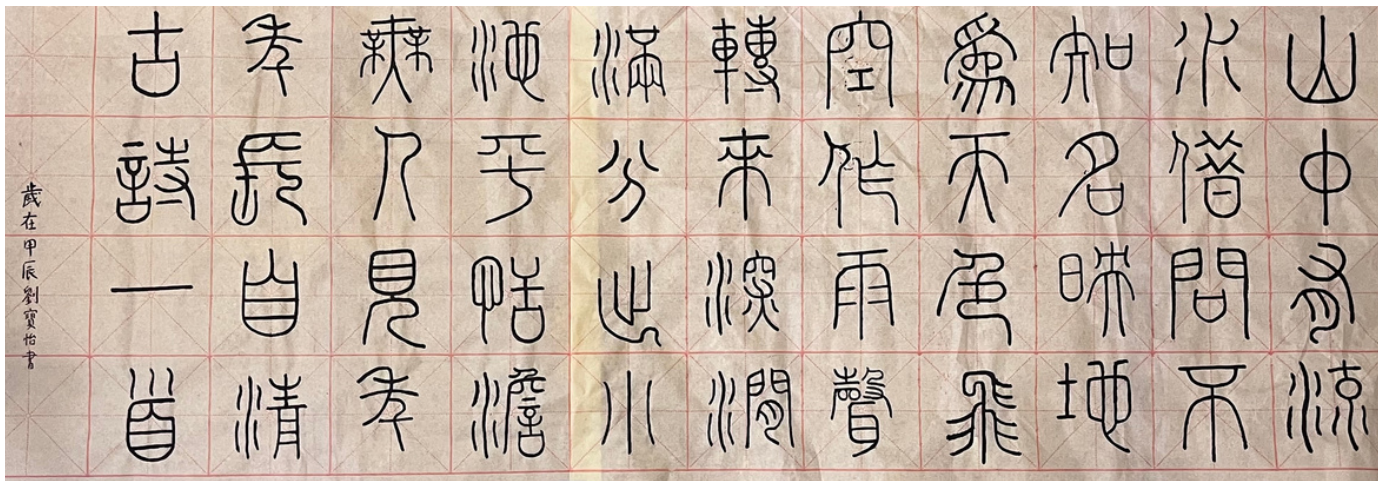 山中有流
水借問不
知名映地
爲天色飛
空作雨聲
轉來深澗
滿分出小
池平恬澹
無人見年
年長自清
古詩一首
歲在甲辰劉寶怡書